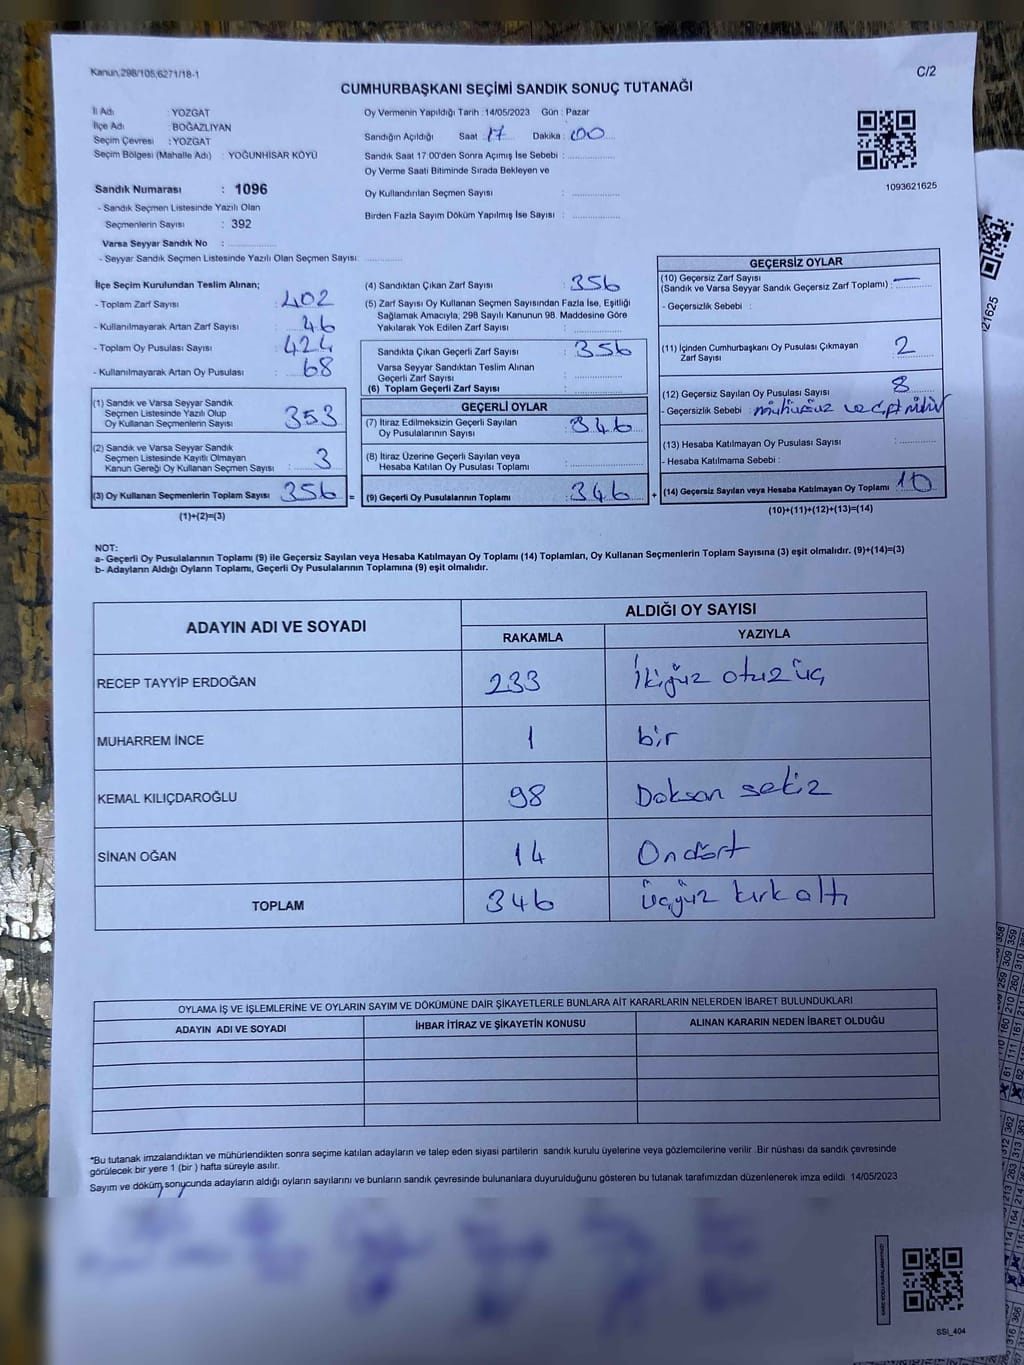 Kanun,298/105,6271/18-1
C/2
CUMHURBAŞKANI SEÇİMİ SANDIK SONUÇ TUTANAĞI
İl Adı : YOZGAT
İlçe Adı : BOĞAZLIYAN
Seçim Çevresi : YOZGAT
Seçim Bölgesi (Mahalle Adı) : YOĞUNHİSAR KÖYÜ
Sandık Numarası : 1096
- Sandık Seçmen Listesinde Yazılı Olan
Seçmenlerin Sayısı : 392
Varsa Seyyar Sandık No :
- Seyyar Sandık Seçmen Listesinde Yazılı Olan Seçmen Sayısı:
Oy Vermenin Yapıldığı Tarih :14/05/2023 Gün : Pazar
Sandığın Açıldığı Saat : 17 Dakika : 00
Sandık Saat 17:00'den Sonra Açımış İse Sebebi :
Oy Verme Saati Bitiminde Sırada Bekleyen ve
Oy Kullandırılan Seçmen Sayısı :
Birden Fazla Sayım Döküm Yapılmış İse Sayısı :
1093621625
İlçe Seçim Kurulundan Teslim Alınan;
- Toplam Zarf Sayısı : 402
- Kullanılmayarak Artan Zarf Sayısı : 46
- Toplam Oy Pusulası Sayısı : 424
- Kullanılmayarak Artan Oy Pusulası : 68
(1) Sandık ve Varsa Seyyar Sandık
Seçmen Listesinde Yazılı Olup
Oy Kullanan Seçmenlerin Sayısı : 353
(2) Sandık ve Varsa Seyyar Sandık
Seçmen Listesinde Kayıtlı Olmayan
Kanun Gereği Oy Kullanan Seçmen Sayısı : 3
(3) Oy Kullanan Seçmenlerin Toplam Sayısı : 356 =
(1)+(2)=(3)
(4) Sandıktan Çıkan Zarf Sayısı : 356
(5) Zarf Sayısı Oy Kullanan Seçmen Sayısından Fazla İse, Eşitliği
Sağlamak Amacıyla, 298 Sayılı Kanunun 98. Maddesine Göre
Yakılarak Yok Edilen Zarf Sayısı :
Sandıkta Çıkan Geçerli Zarf Sayısı : 356
Varsa Seyyar Sandıktan Teslim Alınan
Geçerli Zarf Sayısı :
(6) Toplam Geçerli Zarf Sayısı :
GEÇERLİ OYLAR
(7) İtiraz Edilmeksizin Geçerli Sayılan
Oy Pusulalarının Sayısı : 346
(8) İtiraz Üzerine Geçerli Sayılan veya
Hesaba Katılan Oy Pusulası Toplamı :
(9) Geçerli Oy Pusulalarının Toplamı : 346 +
GEÇERSİZ OYLAR
(10) Geçersiz Zarf Sayısı
(Sandık ve Varsa Seyyar Sandık Geçersiz Zarf Toplamı) : —
- Geçersizlik Sebebi :
(11) İçinden Cumhurbaşkanı Oy Pusulası Çıkmayan
Zarf Sayısı : 2
(12) Geçersiz Sayılan Oy Pusulası Sayısı : 8
- Geçersizlik Sebebi : mühürsüz ve çift mühür
(13) Hesaba Katılmayan Oy Pusulası Sayısı :
- Hesaba Katılmama Sebebi :
(14) Geçersiz Sayılan veya Hesaba Katılmayan Oy Toplamı : 10
(10)+(11)+(12)+(13)=(14)
NOT:
a- Geçerli Oy Pusulalarının Toplamı (9) ile Geçersiz Sayılan veya Hesaba Katılmayan Oy Toplamı (14) Toplamları, Oy Kullanan Seçmenlerin Toplam Sayısına (3) eşit olmalıdır. (9)+(14)=(3)
b- Adayların Aldığı Oyların Toplamı, Geçerli Oy Pusulalarının Toplamına (9) eşit olmalıdır.
ADAYIN ADI VE SOYADI ALDIĞI OY SAYISI
RAKAMLA YAZIYLA
RECEP TAYYİP ERDOĞAN 233 İkiyüz otuz üç
MUHARREM İNCE 1 bir
KEMAL KILIÇDAROĞLU 98 Doksan sekiz
SİNAN OĞAN 14 Ondört
TOPLAM 346 üçyüz kırk altı
OYLAMA İŞ VE İŞLEMLERİNE VE OYLARIN SAYIM VE DÖKÜMÜNE DAİR ŞİKAYETLERLE BUNLARA AİT KARARLARIN NELERDEN İBARET BULUNDUKLARI
ADAYIN ADI VE SOYADI İHBAR İTİRAZ VE ŞİKAYETİN KONUSU ALINAN KARARIN NEDEN İBARET OLDUĞU
*Bu tutanak imzalandıktan ve mühürlendikten sonra seçime katılan adayların ve talep eden siyasi partilerin sandık kurulu üyelerine veya gözlemcilerine verilir .Bir nüshası da sandık çevresinde
görülecek bir yere 1 (bir ) hafta süreyle asılır.
Sayım ve döküm sonucunda adayların aldığı oyların sayılarını ve bunların sandık çevresinde bulunanlara duyurulduğunu gösteren bu tutanak tarafımızdan düzenlenerek imza edildi. 14/05/2023
SSI_404